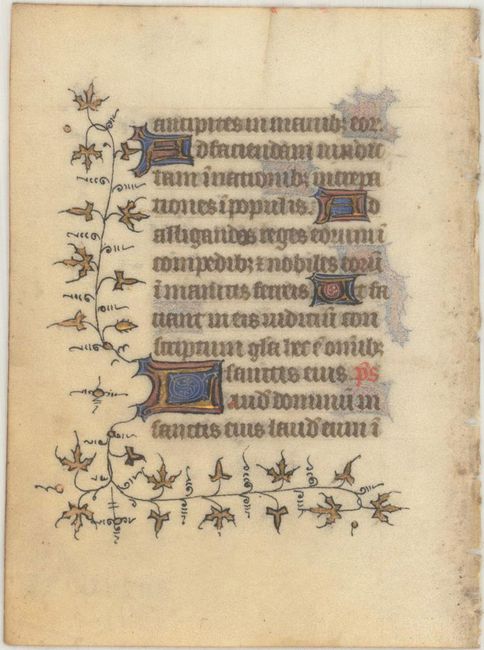 ancipites in manib; eor.
Ad faciendam vindic
tam ī nationib; increpa
tiones ī populis. Ad
alligandos reges eorum ī
compedib; ⁊ nobiles eorū
ī manicis ferreis Ut fa
ciant in eis iudiciū con
scriptum gl̄a hec ē om̄ib;
sanctis eius. ps
Laud̄ dominū in
sanctis eius laud̄ eum ī